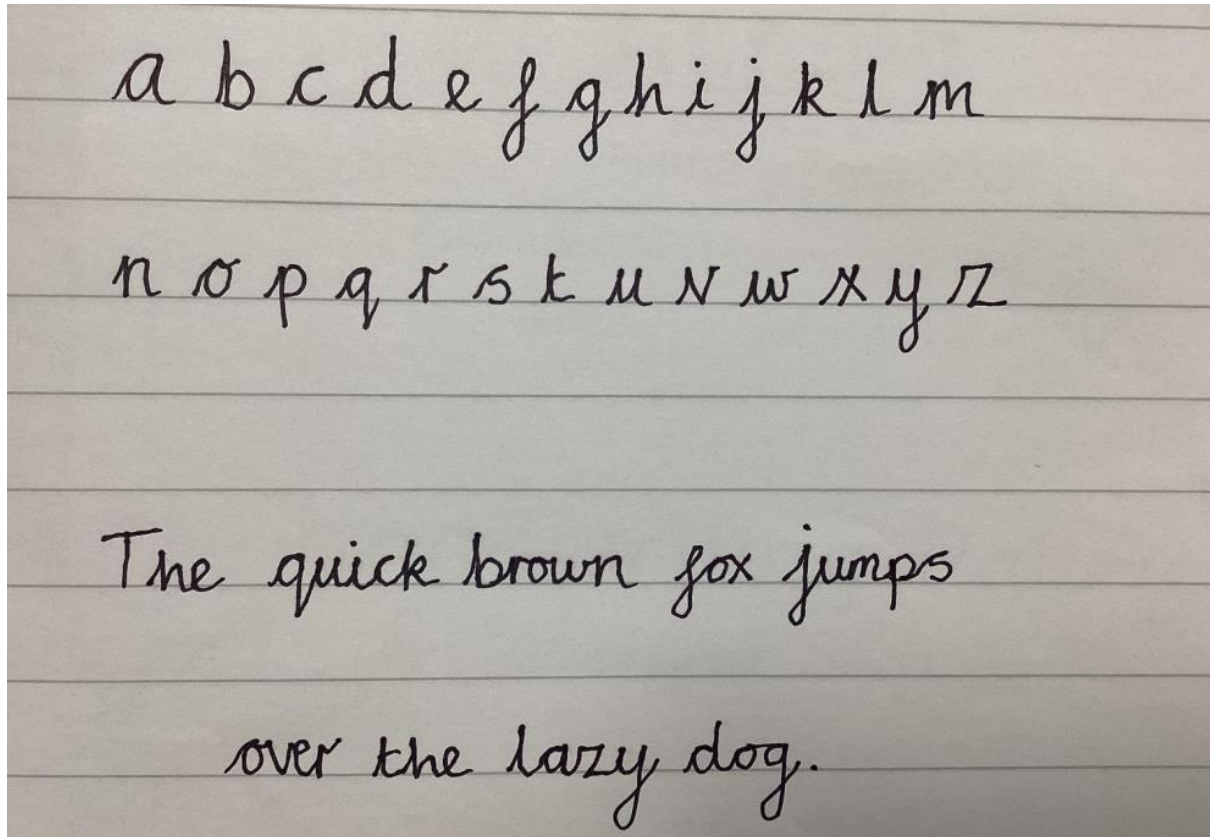 a b c d e f g h i j k l m
n o p q r s t u v w x y z
The quick brown fox jumps
over the lazy dog.